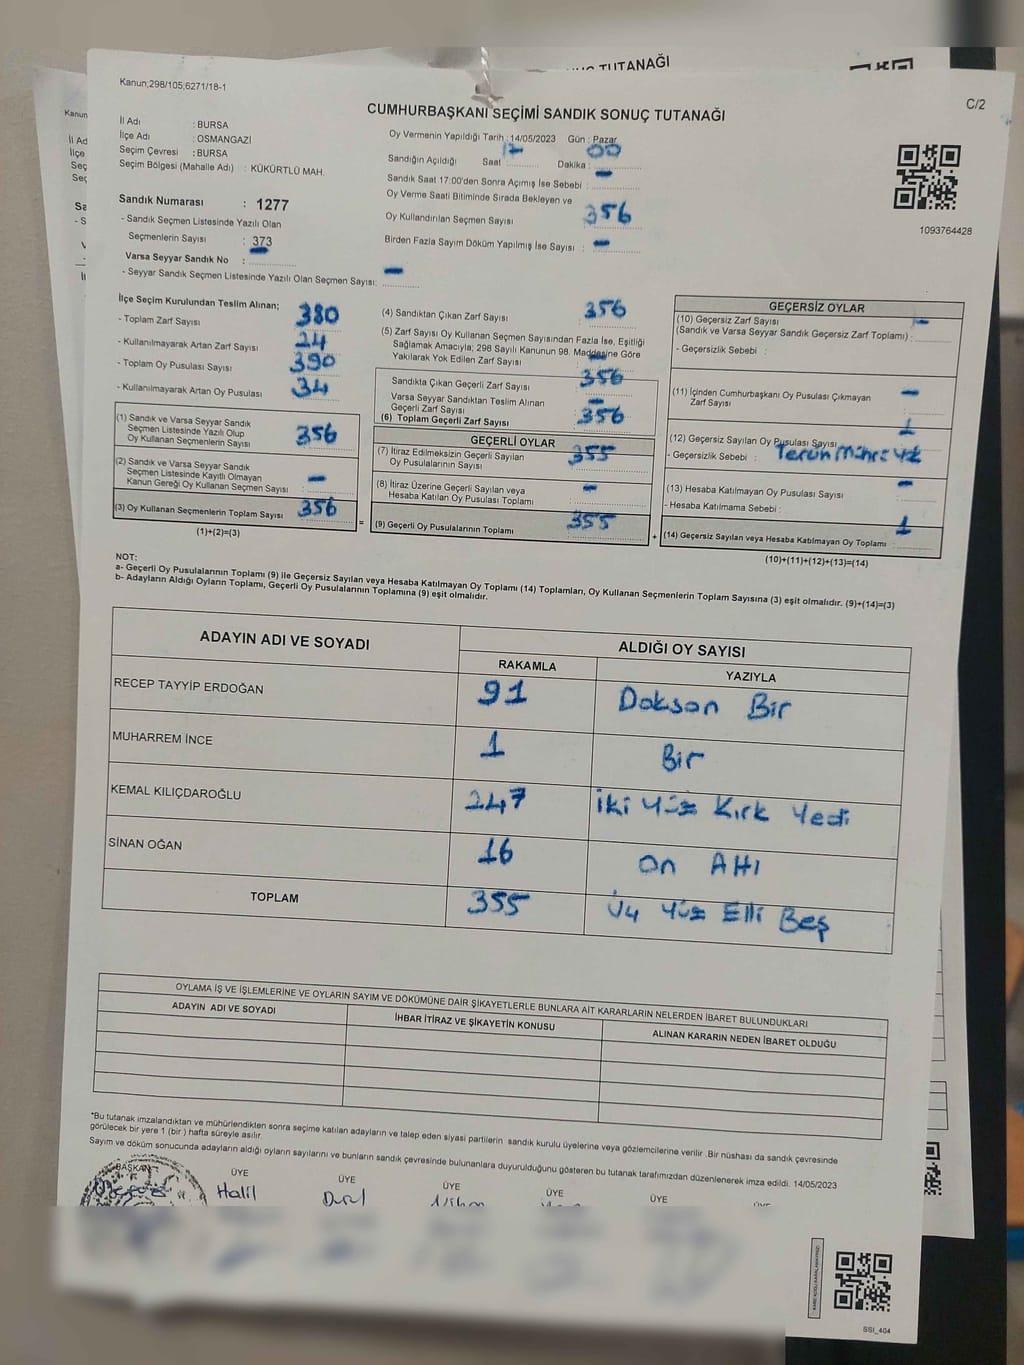 TUTANAĞI
Kanun;298/105;6271/18-1
C/2
CUMHURBAŞKANI SEÇİMİ SANDIK SONUÇ TUTANAĞI
İl Adı : BURSA
İlçe Adı : OSMANGAZİ
Seçim Çevresi : BURSA
Seçim Bölgesi (Mahalle Adı) : KÜKÜRTLÜ MAH.
Oy Vermenin Yapıldığı Tarih : 14/05/2023 Gün : Pazar
Sandığın Açıldığı Saat 17 Dakika : 00
Sandık Saat 17:00'den Sonra Açımış İse Sebebi : -
Oy Verme Saati Bitiminde Sırada Bekleyen ve
Oy Kullandırılan Seçmen Sayısı 356
Birden Fazla Sayım Döküm Yapılmış İse Sayısı : -
1093764428
Sandık Numarası : 1277
- Sandık Seçmen Listesinde Yazılı Olan
Seçmenlerin Sayısı : 373
Varsa Seyyar Sandık No : -
- Seyyar Sandık Seçmen Listesinde Yazılı Olan Seçmen Sayısı: -
İlçe Seçim Kurulundan Teslim Alınan;
- Toplam Zarf Sayısı 380
- Kullanılmayarak Artan Zarf Sayısı 24
- Toplam Oy Pusulası Sayısı 390
- Kullanılmayarak Artan Oy Pusulası 34
(1) Sandık ve Varsa Seyyar Sandık
Seçmen Listesinde Yazılı Olup
Oy Kullanan Seçmenlerin Sayısı 356
(2) Sandık ve Varsa Seyyar Sandık
Seçmen Listesinde Kayıtlı Olmayan
Kanun Gereği Oy Kullanan Seçmen Sayısı : -
(3) Oy Kullanan Seçmenlerin Toplam Sayısı 356
(1)+(2)=(3)
(4) Sandıktan Çıkan Zarf Sayısı 356
(5) Zarf Sayısı Oy Kullanan Seçmen Sayısından Fazla İse, Eşitliği
Sağlamak Amacıyla; 298 Sayılı Kanunun 98. Maddesine Göre
Yakılarak Yok Edilen Zarf Sayısı -
Sandıkta Çıkan Geçerli Zarf Sayısı 356
Varsa Seyyar Sandıktan Teslim Alınan
Geçerli Zarf Sayısı -
(6) Toplam Geçerli Zarf Sayısı 356
GEÇERLİ OYLAR
(7) İtiraz Edilmeksizin Geçerli Sayılan
Oy Pusulalarının Sayısı 355
(8) İtiraz Üzerine Geçerli Sayılan veya
Hesaba Katılan Oy Pusulası Toplamı : -
= (9) Geçerli Oy Pusulalarının Toplamı 355
GEÇERSİZ OYLAR
(10) Geçersiz Zarf Sayısı -
(Sandık ve Varsa Seyyar Sandık Geçersiz Zarf Toplamı) :
- Geçersizlik Sebebi :
(11) İçinden Cumhurbaşkanı Oy Pusulası Çıkmayan
Zarf Sayısı -
(12) Geçersiz Sayılan Oy Pusulası Sayısı 1
- Geçersizlik Sebebi :
(13) Hesaba Katılmayan Oy Pusulası Sayısı -
- Hesaba Katılmama Sebebi :
+ (14) Geçersiz Sayılan veya Hesaba Katılmayan Oy Toplamı : 1
(10)+(11)+(12)+(13)=(14)
NOT:
a- Geçerli Oy Pusulalarının Toplamı (9) ile Geçersiz Sayılan veya Hesaba Katılmayan Oy Toplamı (14) Toplamları, Oy Kullanan Seçmenlerin Toplam Sayısına (3) eşit olmalıdır. (9)+(14)=(3)
b- Adayların Aldığı Oyların Toplamı, Geçerli Oy Pusulalarının Toplamına (9) eşit olmalıdır.
ADAYIN ADI VE SOYADI ALDIĞI OY SAYISI
RAKAMLA YAZIYLA
RECEP TAYYİP ERDOĞAN 91 Doksan Bir
MUHARREM İNCE 1 Bir
KEMAL KILIÇDAROĞLU 247 İki Yüz Kırk Yedi
SİNAN OĞAN 16 On Altı
TOPLAM 355 Üç Yüz Elli Beş
OYLAMA İŞ VE İŞLEMLERİNE VE OYLARIN SAYIM VE DÖKÜMÜNE DAİR ŞİKAYETLERLE BUNLARA AİT KARARLARIN NELERDEN İBARET BULUNDUKLARI
ADAYIN ADI VE SOYADI İHBAR İTİRAZ VE ŞİKAYETİN KONUSU ALINAN KARARIN NEDEN İBARET OLDUĞU
*Bu tutanak imzalandıktan ve mühürlendikten sonra seçime katılan adayların ve talep eden siyasi partilerin sandık kurulu üyelerine veya gözlemcilerine verilir .Bir nüshası da sandık çevresinde
görülecek bir yere 1 (bir ) hafta süreyle asılır.
Sayım ve döküm sonucunda adayların aldığı oyların sayılarını ve bunların sandık çevresinde bulunanlara duyurulduğunu gösteren bu tutanak tarafımızdan düzenlenerek imza edildi. 14/05/2023
BAŞKAN ÜYE ÜYE ÜYE ÜYE ÜYE
Halil
SSI_404